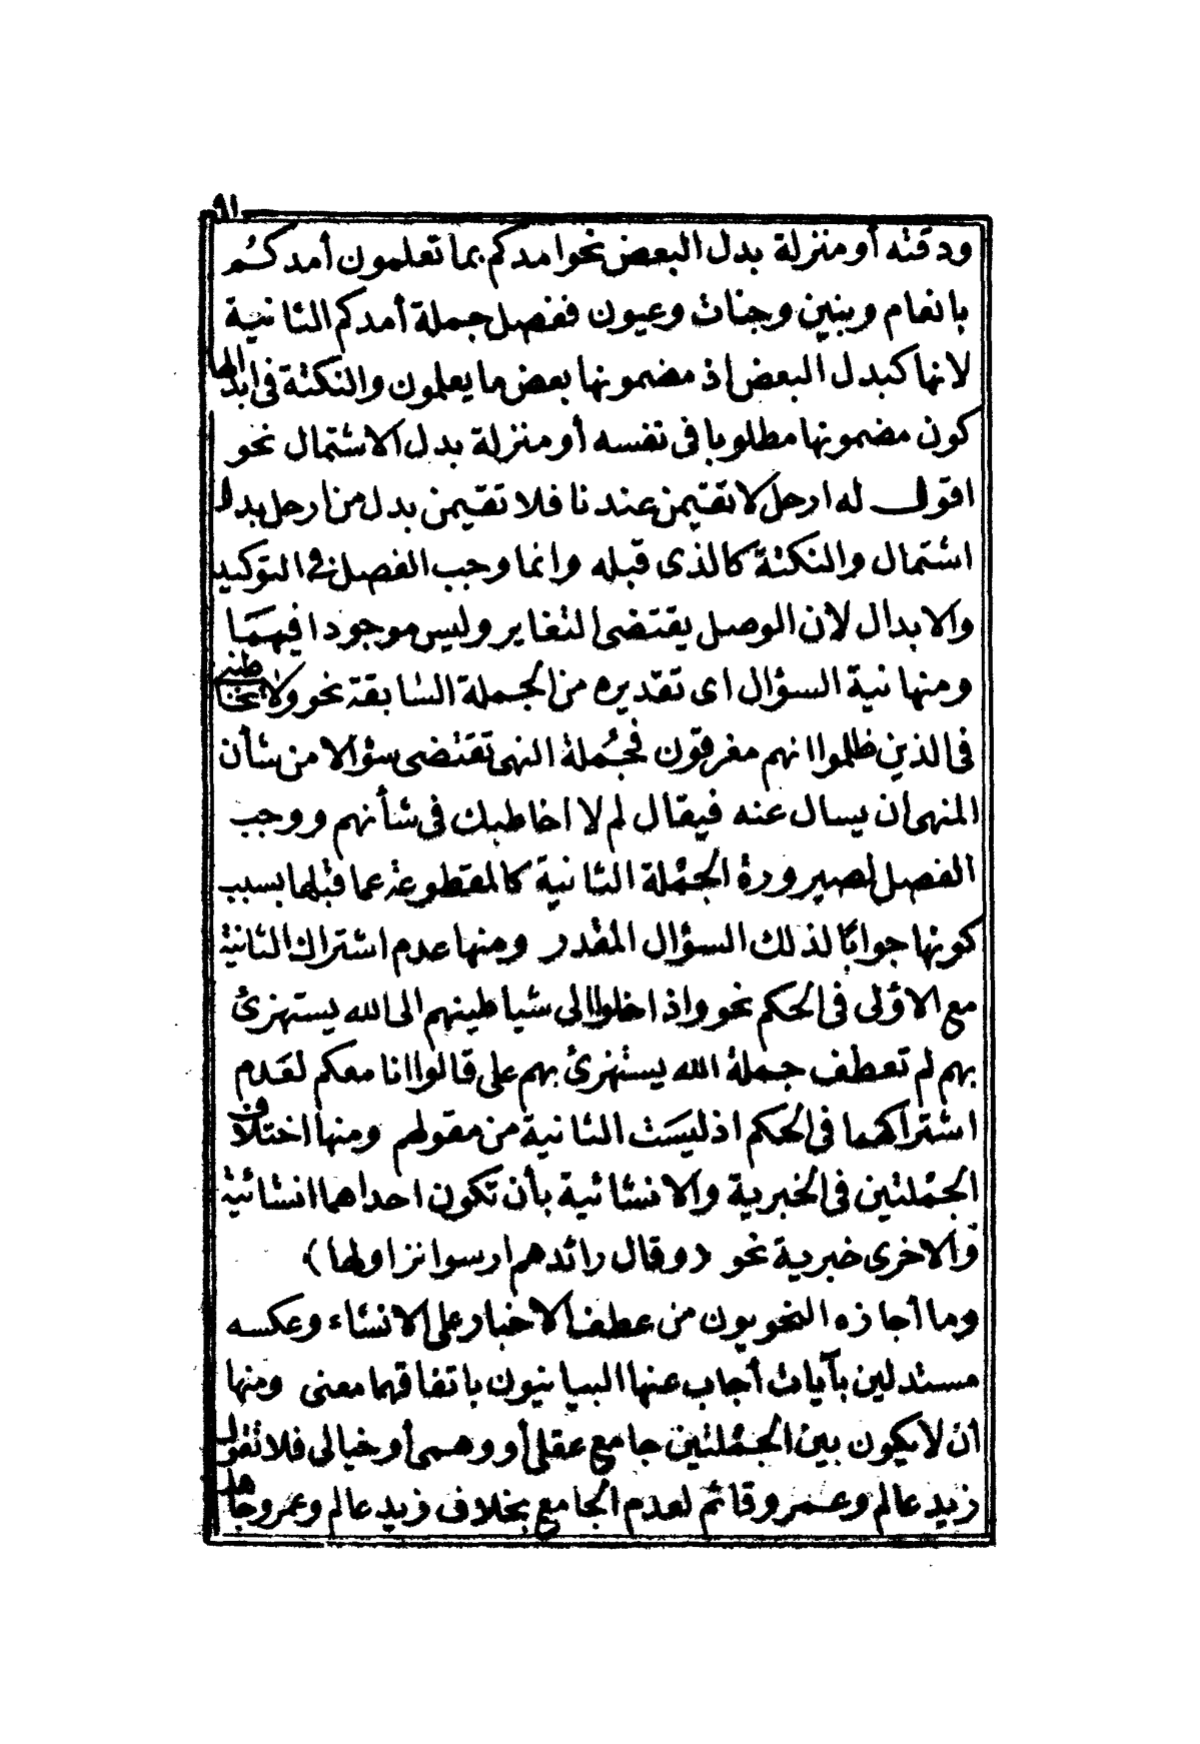 ٩١
ودقته أو منزلة بدل البعض نحو امدكم بما تعلمون أمدكم
بانعام وبنين وجنات وعيون ففصل جملة أمدكم الثانية
لانها كبدل البعض اذ مضمونها بعض ما يعلمون والنكتة في ابدالها
كون مضمونها مطلوبا فى نفسه أو منزلة بدل الاشتمال نحو
اقول له ارحل لا تقيمن عندنا فلا تقيمن بدل من ارحل بدل
اشتمال والنكتة كالذى قبله وانما وجب الفصل في التوكيد
والابدال لان الوصل يقتضى التغاير وليس موجودا فيهمَا
ومنها نية السؤال اى تقديره من الجملة السابقة نحو ولا تخاطبنى
فى الذين ظلموا انهم مغرقون فجُملة النهى تقتضى سؤالا من شأن
المنهى ان يسال عنه فيقال لم لا اخاطبك فى شأنهم ووجب
الفصل لصيرورة الجمْلة الثانية كالمقطوعة عما قبلها بسبب
كونها جوابًا لذلك السؤال المقدر ومنها عدم اشتراك الثانية
مع الاؤلى فى الحكم نحو واذا خلوا الى شياطينهم الى الله يستهزئ
بهم لم تعطف جملة الله يستهزئ بهم على قالوا انا معكم لعَدم
اشتراكهما فى الحكم اذ ليسَت الثانية من مقولهم ومنها اختلاف
الجمْلتين فى الخبرية والانشائية بأن تكون احداهما انشائية
والاخرى خبرية نحو (وقال رائدهم ارسوا نزاولها)
وما أجازه النحويون من عطف الاخبار على الانشاء وعكسه
مستدلين بآيات أجاب عنها البيانيون باتفاقهما معنى ومنها
أن لا يكون بين الجمْلتين جامع عقلى أو وهمى أو خيالى فلا تقول
زيد عالم وعمرو قائم لعدم الجامع بخلاف زيد عالم وعمرو جاهل